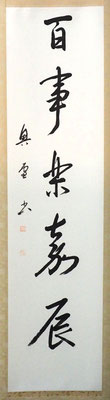 百事楽嘉辰